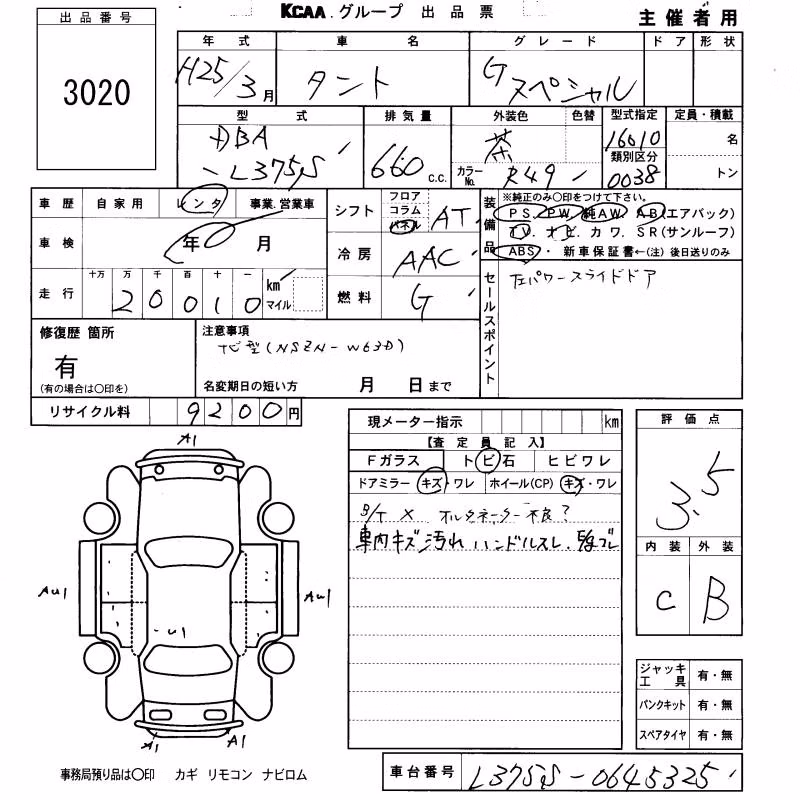 出品番号
3020
KCAA.グループ 出品票
主催者用
年式 車名 グレード ドア 形状
H25/3月 タント Gスペシャル
型式 排気量 外装色 色替 型式指定 定員・積載
DBA-L375S 660 c.c. 茶 カラーNo. R49 16010 名
類別区分
0038 トン
車歴 自家用 レンタ 事業.営業車
車検 年 0 月
走行 十万 万 千 百 十 一
20010 km マイル
シフト フロア コラム パネル AT
冷房 AAC
燃料 G
装備品
※純正のみ〇印をつけて下さい。
PS. PW. 純AW. AB(エアバック)
TV. ナビ. カワ. SR(サンルーフ)
ABS. 新車保証書←(注) 後日送りのみ
セールスポイント
左パワースライドドア
修復歴 箇所
有
(有の場合は〇印を)
注意事項
ナビ型(NSZN-W63D)
名変期日の短い方 月 日まで
リサイクル料 9200円
現メーター指示 km
【査定員記入】
Fガラス トビ石 ヒビワレ
ドアミラー キズ・ワレ ホイール(CP) キズ・ワレ
B/T × オルタネーター不良?
車内キズ汚れ ハンドルスレ.
評価点
3.5
内装 外装
C B
A1
AU1
U1
AU1
A1
A1
ジャッキ工具 有・無
パンクキット 有・無
スペアタイヤ 有・無
事務局預り品は〇印 カギ リモコン ナビロム
車台番号 L375S-0645325